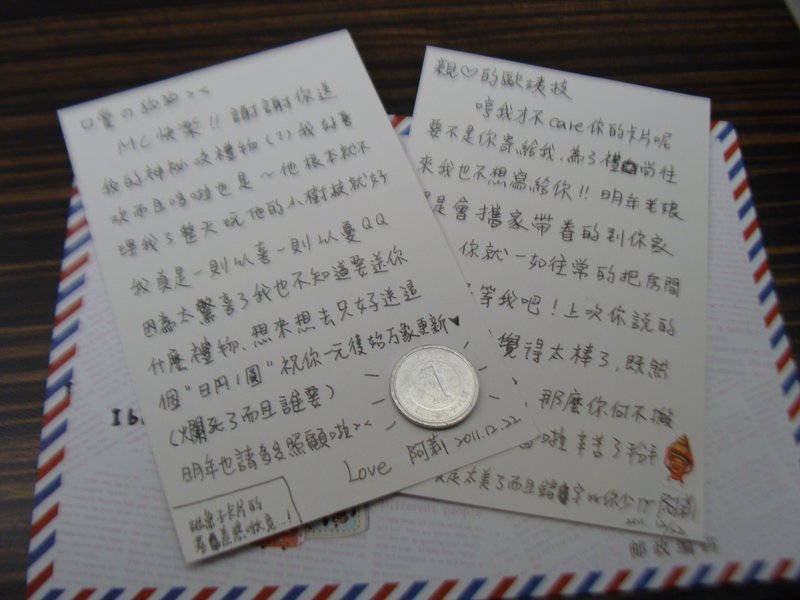 口愛の狗狗><
MC快樂!!謝謝你送
我的神秘波禮物(?)我好喜
歡而且哆啦也是~他根本就不
理我了整天玩他的小樹枝就好
我真是一則以喜一則以憂QQ
因為太驚喜了我也不知道要送你
什麼禮物、想來想去只好送這
個"日円1圓"祝你一元復始萬象更新♥
(爛死了而且誰要)
明年也請多多照顧啦><
Love 阿莉 2011.12.22
1
親♡的歐姨枝
哼我才不care你的卡片呢
要不是你寄給我,為了禮尚往
來我也不想寫給你!!明年毛根
是會攜家帶眷的到你家
你就一如往常的把房間
等我吧!上次你說的
覺得太棒了,既然
那麼你何不搬
啦 辛苦了
太美了而且錯字
different people